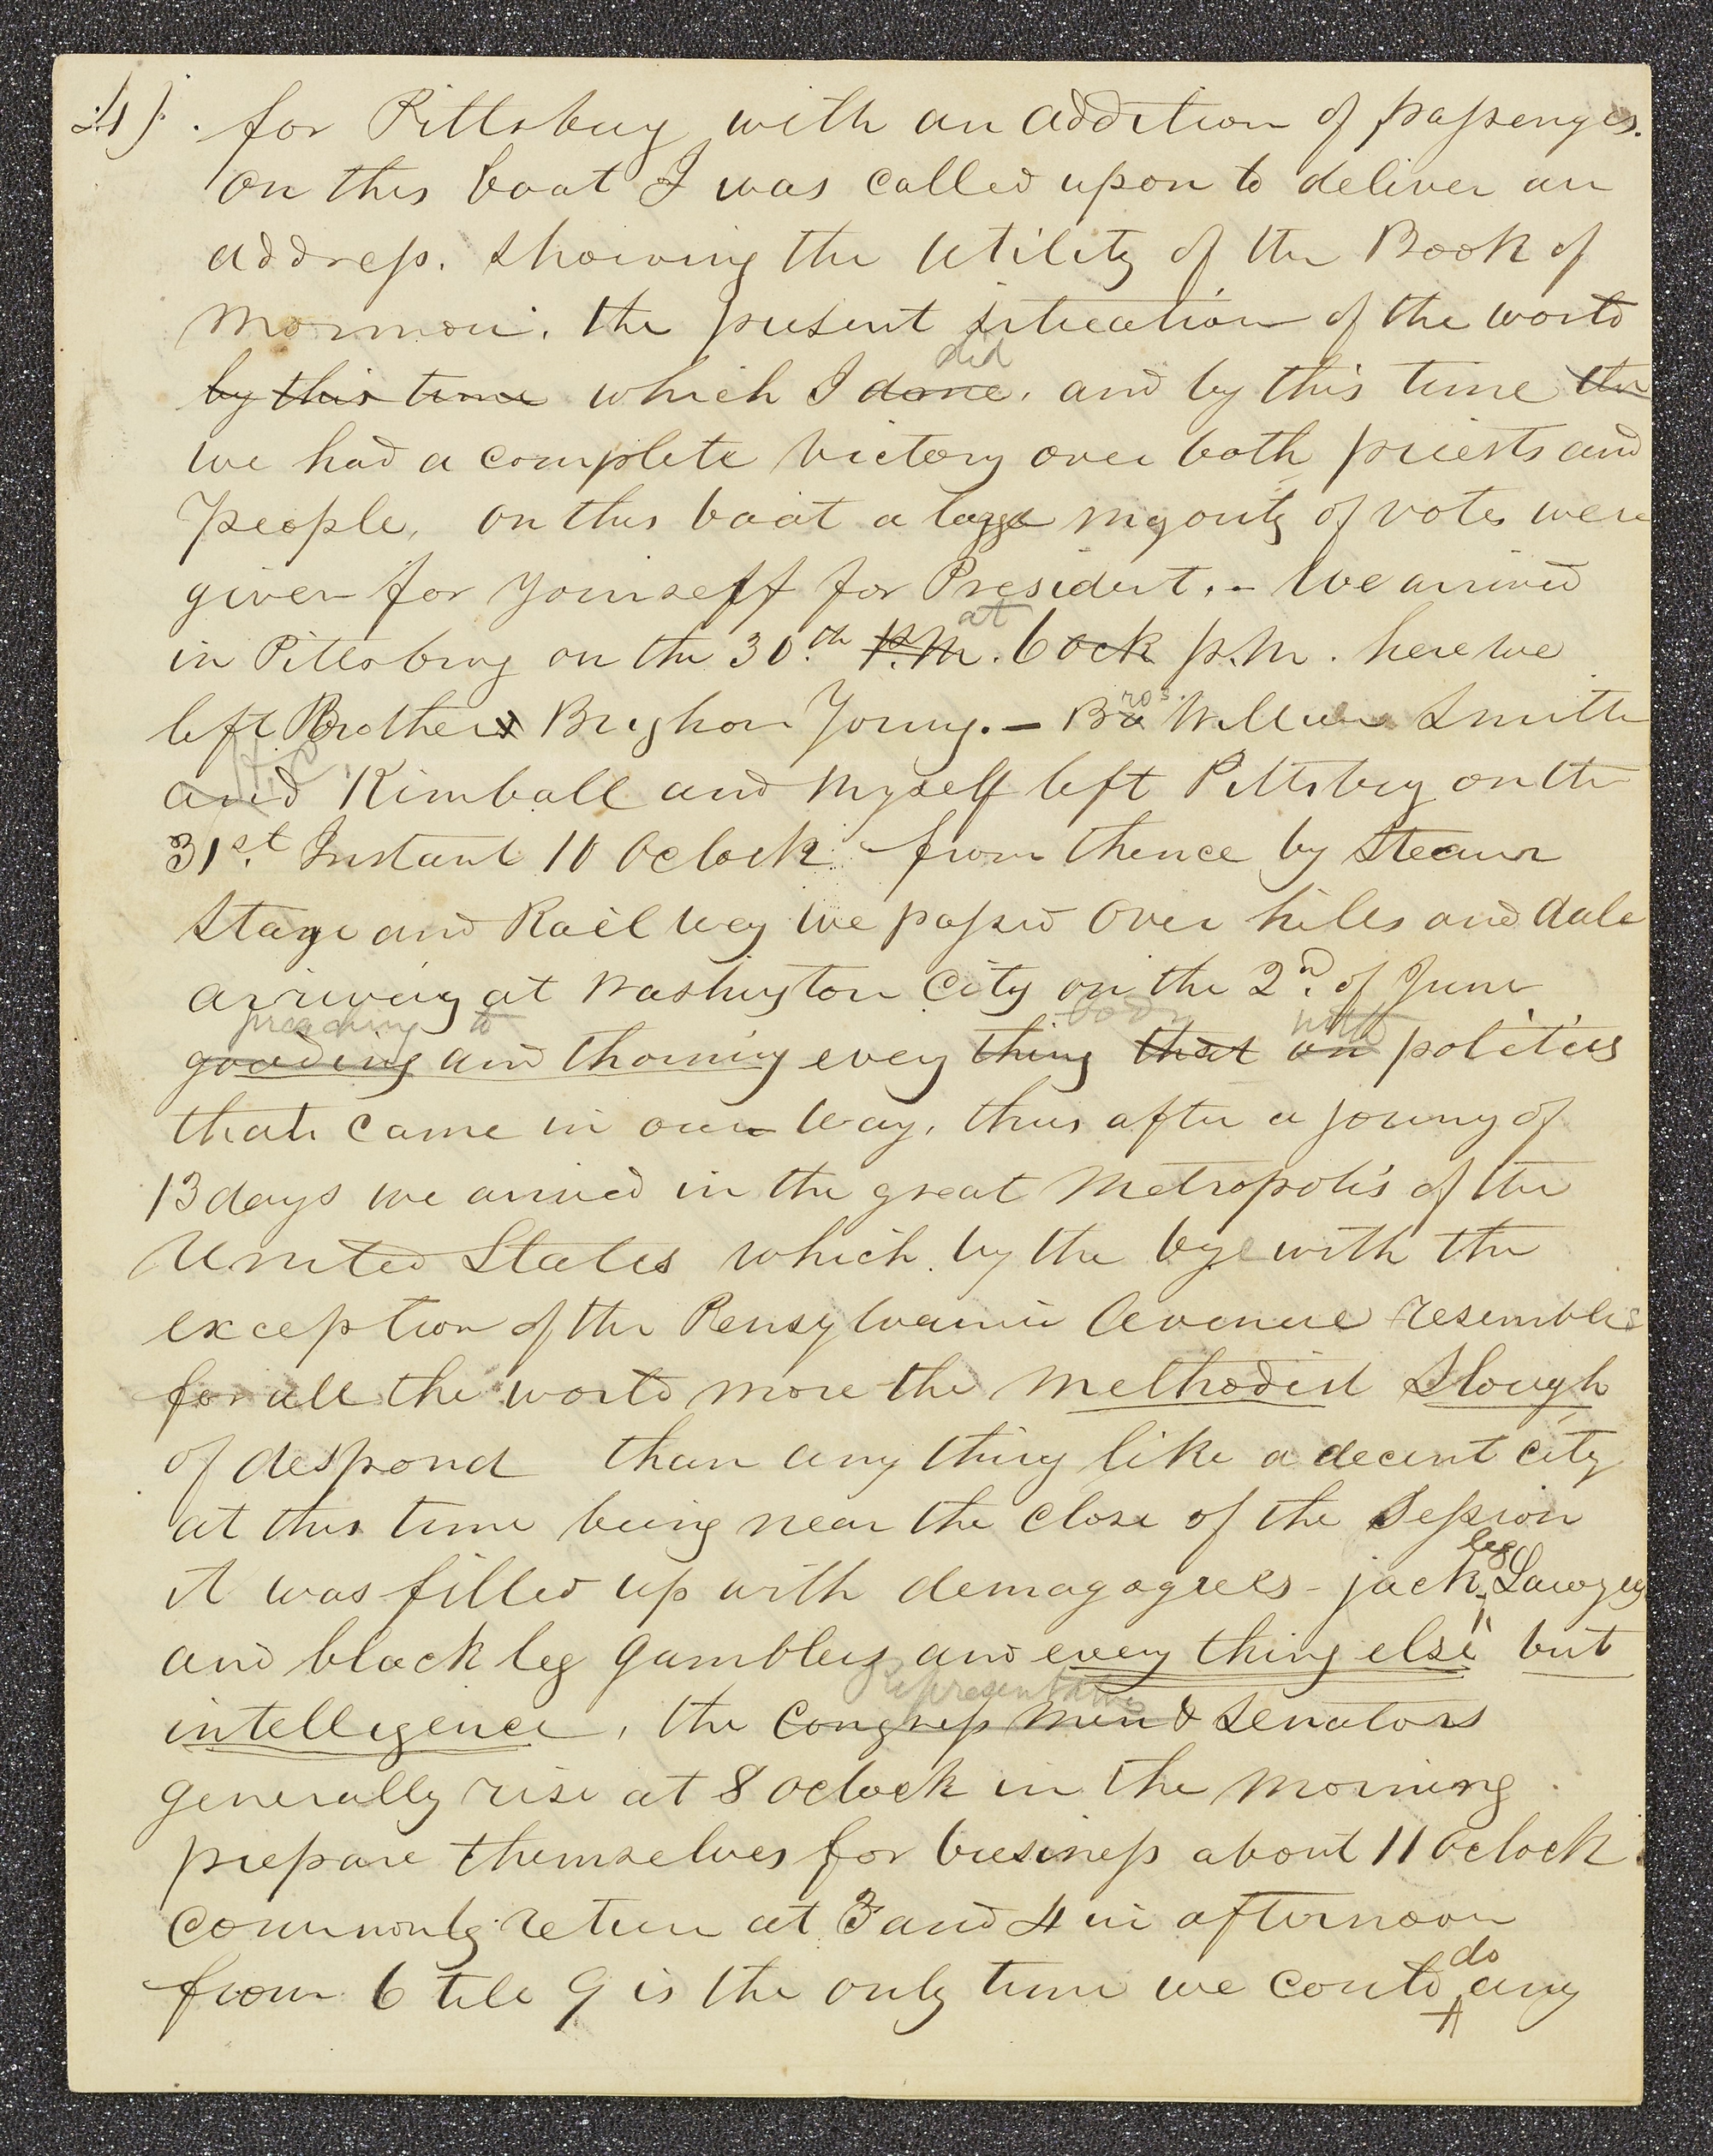 4) for Pittsburg with an addition of passengers.
on this boat I was called upon to deliver an
address. showing the utility of the Book of
Mormon. the present situation of the world
did
by this time which I done. and by this time the
we had a complete victory over both priests and
people, on this boat a large majority of votes were
given for yourself for President. - We arrived
at
in Pittsburg on the 30.th P.M. 6 ock p.m. here we
ros.
left Brothers Brigham Young. - Br William Smith
H. C.
and Kimball and myself left Pittsburg on the
31st. Instant 10 Oclock from thence by Steam
Stage and Rail way we passed over hills and dale
arriving at Washington City on the 2nd. of June
preaching to body with
goading and thorning evry thing that on politics
that came in our way. thus after a journy of
13 days we arrived in the great Metropolis of the
United States which by the bye with the
exception of the Pensylvania Avenue resembles
for all the world more the Methodist Slough
of despond than any thing like a decent city
at this time being near the close of the Session
leg
it was filled up with demagogues - jack Lawyers
and black leg gamblers and every thing else but
Representatives
intelligence, the Congress men & Senators
generally rise at 8 oclock in the morning
prepare themselves for business about 11 oclock.
commonly return at 3 and 4 in afternoon
do
from 6 till 9 is the only time we could any